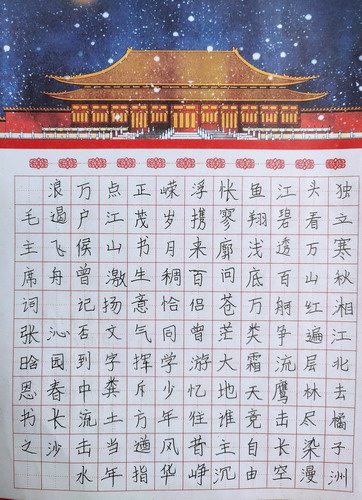 独立寒秋湘江北去橘子洲
头看万山红遍层林尽染漫
江碧透百舸争流鹰击长空
鱼翔浅底万类霜天竞自由
怅寥廓问苍茫大地谁主沉
浮携来百侣曾游忆往昔峥
嵘岁月稠恰同学少年风华
正茂书生意气挥斥方遒指
点江山激扬文字粪土当年
万户侯曾记否到中流击水
浪遏飞舟 沁园春长沙
毛主席词张晗恩书之